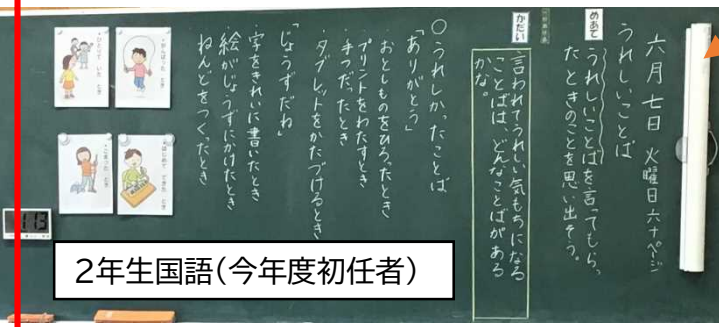 六月七日 火曜日 六十ページ
うれしいことば
めあて
うれしいことばを言ってもらっ
たときのことを思い出そう。
かだい
言われてうれしい気もちになる
ことばは、どんなことばがある
かな。
○うれしかったことば
「ありがとう」
・おとしものをひろったとき
・プリントをわたすとき
・手つだったとき
・タブレットをかたづけるとき
「じょうずだね」
・字をきれいに書いたとき
・絵がじょうずにかけたとき
・ねんどをつくったとき
がんばった とき
はじめて できた とき
こまった とき
2年生国語(今年度初任者)